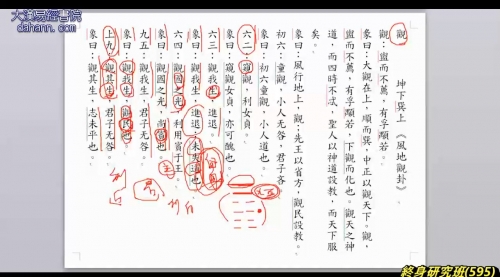 大漠易經書院
dahann.com
觀　坤下巽上 《風地觀卦》
觀：盥而不薦，有孚顒若。
彖曰：大觀在上，順而巽，中正以觀天下。觀，
盥而不薦，有孚顒若，下觀而化也。觀天之神
道，而四時不忒，聖人以神道設教，而天下服
矣。
象曰：風行地上，觀；先王以省方，觀民設教。
初六：童觀，小人无咎，君子吝。
象曰：初六童觀，小人道也。
六二：窺觀，利女貞。
象曰：窺觀女貞，亦可醜也。
六三：觀我生，進退。
象曰：觀我生，進退；未失道也。
六四：觀國之光，利用賓于王。
象曰：觀國之光，尚賓也。
九五：觀我生，君子无咎。
象曰：觀我生，觀民也。
上九：觀其生，君子无咎。
象曰：觀其生，志未平也。
終身研究班(595)